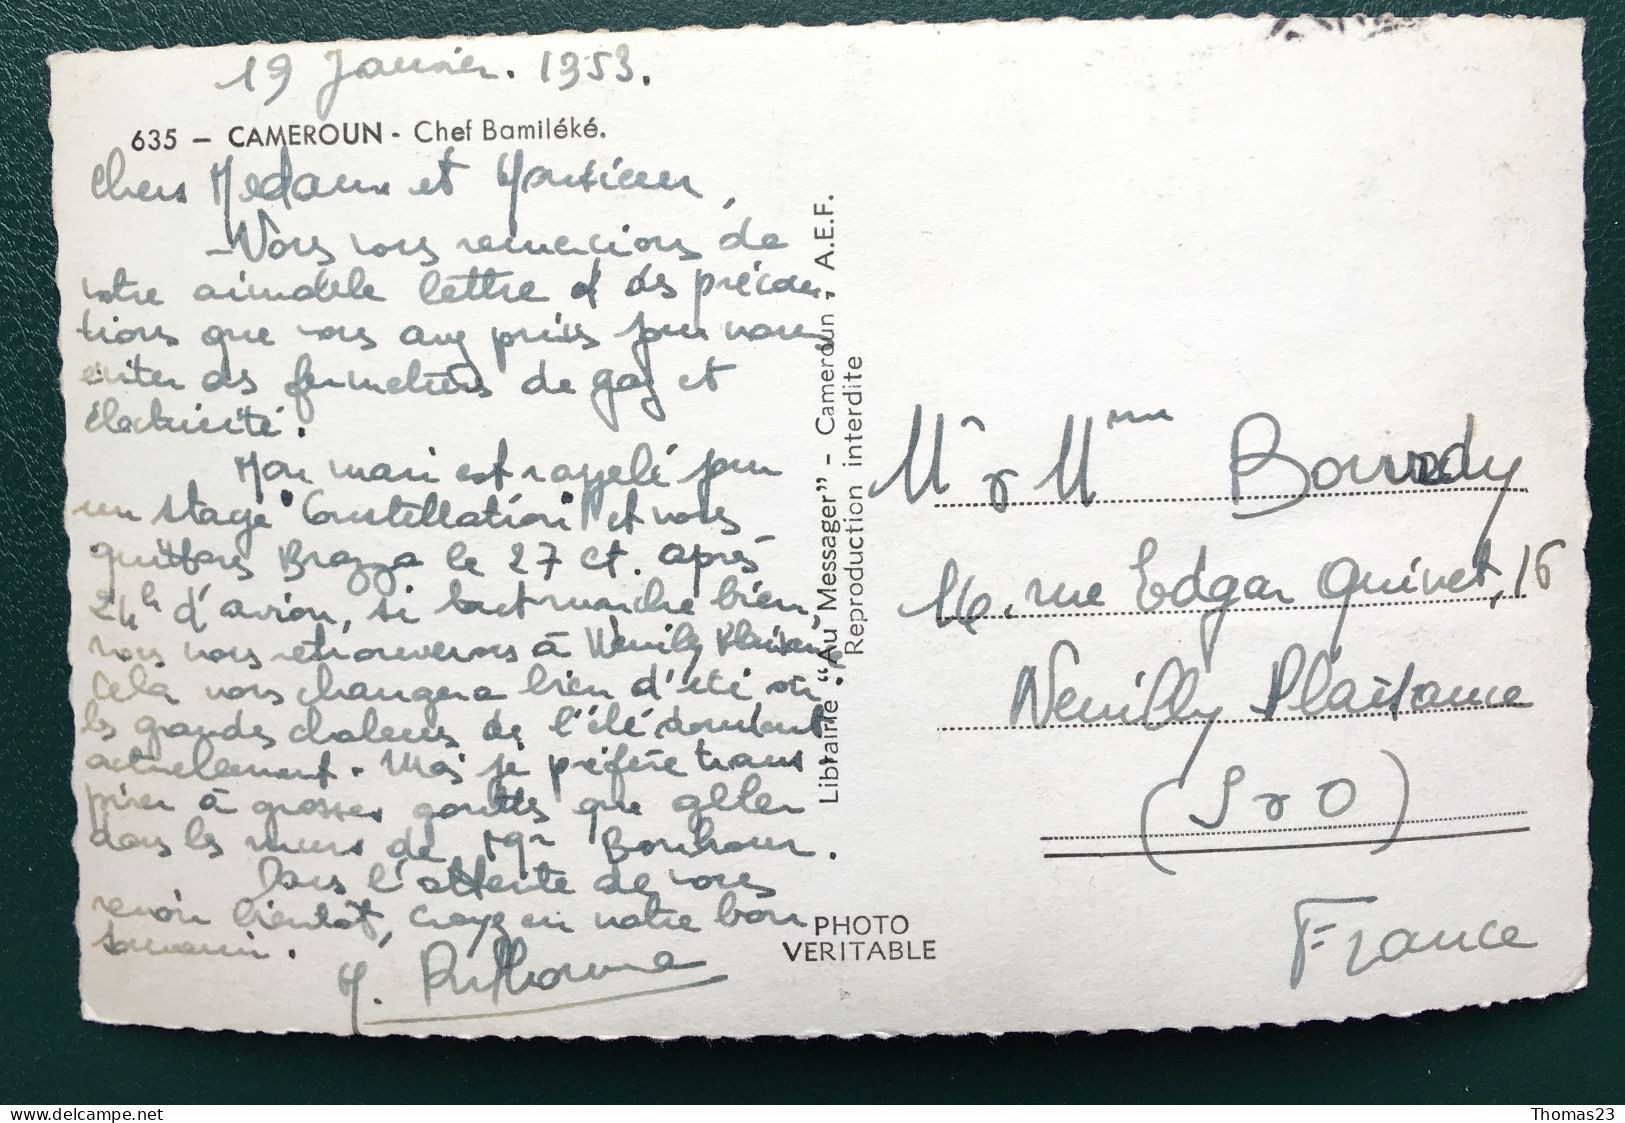 19 Janvier. 1953.
635 — CAMEROUN - Chef Bamiléké.
Chers Madame et Monsieur,
Nous vous remercions de
votre aimable lettre et des précau
tions que vous avez prises pour nous
éviter des fermetures de gaz et
électricité.
Mon mari est rappelé pour
un stage "Constellation" et nous
quittons Brazza le 27 ct. après
24h d'avion, si tout marche bien,
nous nous retrouverons à Neuilly Plaisance.
Cela nous changera bien d'été où
les grandes chaleurs de l'été
actuellement. Mais je préfère trans
pirer à grosses gouttes que geler
dans les murs de Mgr
Dans l'attente de vous
revoir bientôt, croyez en notre bon
souvenir.
Librairie "Au Messager" - Cameroun - A.E.F.
Reproduction interdite
PHOTO
VERITABLE
Mr & Mme Bourrdy
14, rue Edgar Quinet, 16
Neuilly Plaisance
(S & O)
France
Thomas23
delcampe.net